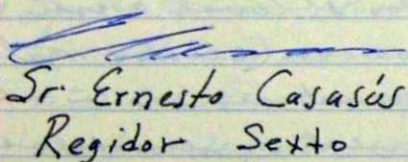 Sr. Ernesto Casasús
Regidor Sexto